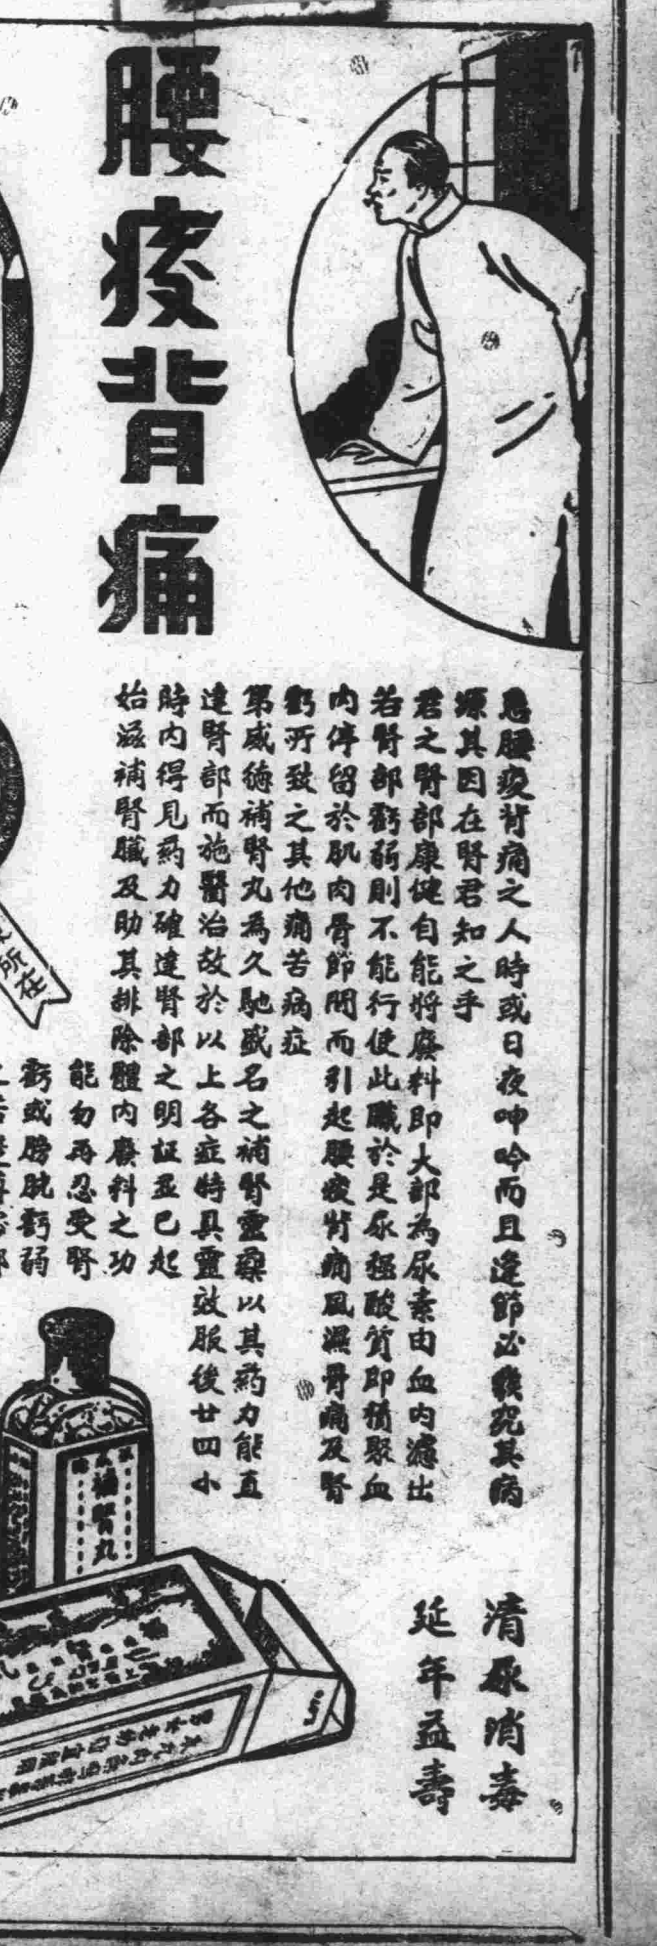 腰痠背痛
患腰痠背痛之人時或日夜呻吟而且逢節必發究其病
源其因在腎君知之乎
君之腎部康健自能將廢料即大部為尿素由血內濾出
若腎部虧弱則不能行使此職於是尿極酸質即積聚血
內停留於肌肉骨節間而引起腰痠背痛風濕骨痛及腎
虧所致之其他痛苦病症
第威德補腎丸為久馳盛名之補腎靈藥以其葯力能直
達腎部而施醫治故於以上各症特具靈效服後廿四小
時內得見葯力確達腎部之明証並已起
始滋補腎臟及助其排除體內廢料之功
能勿再忍受腎
虧或膀胱虧弱
清尿消毒
延年益壽
補腎丸
所在